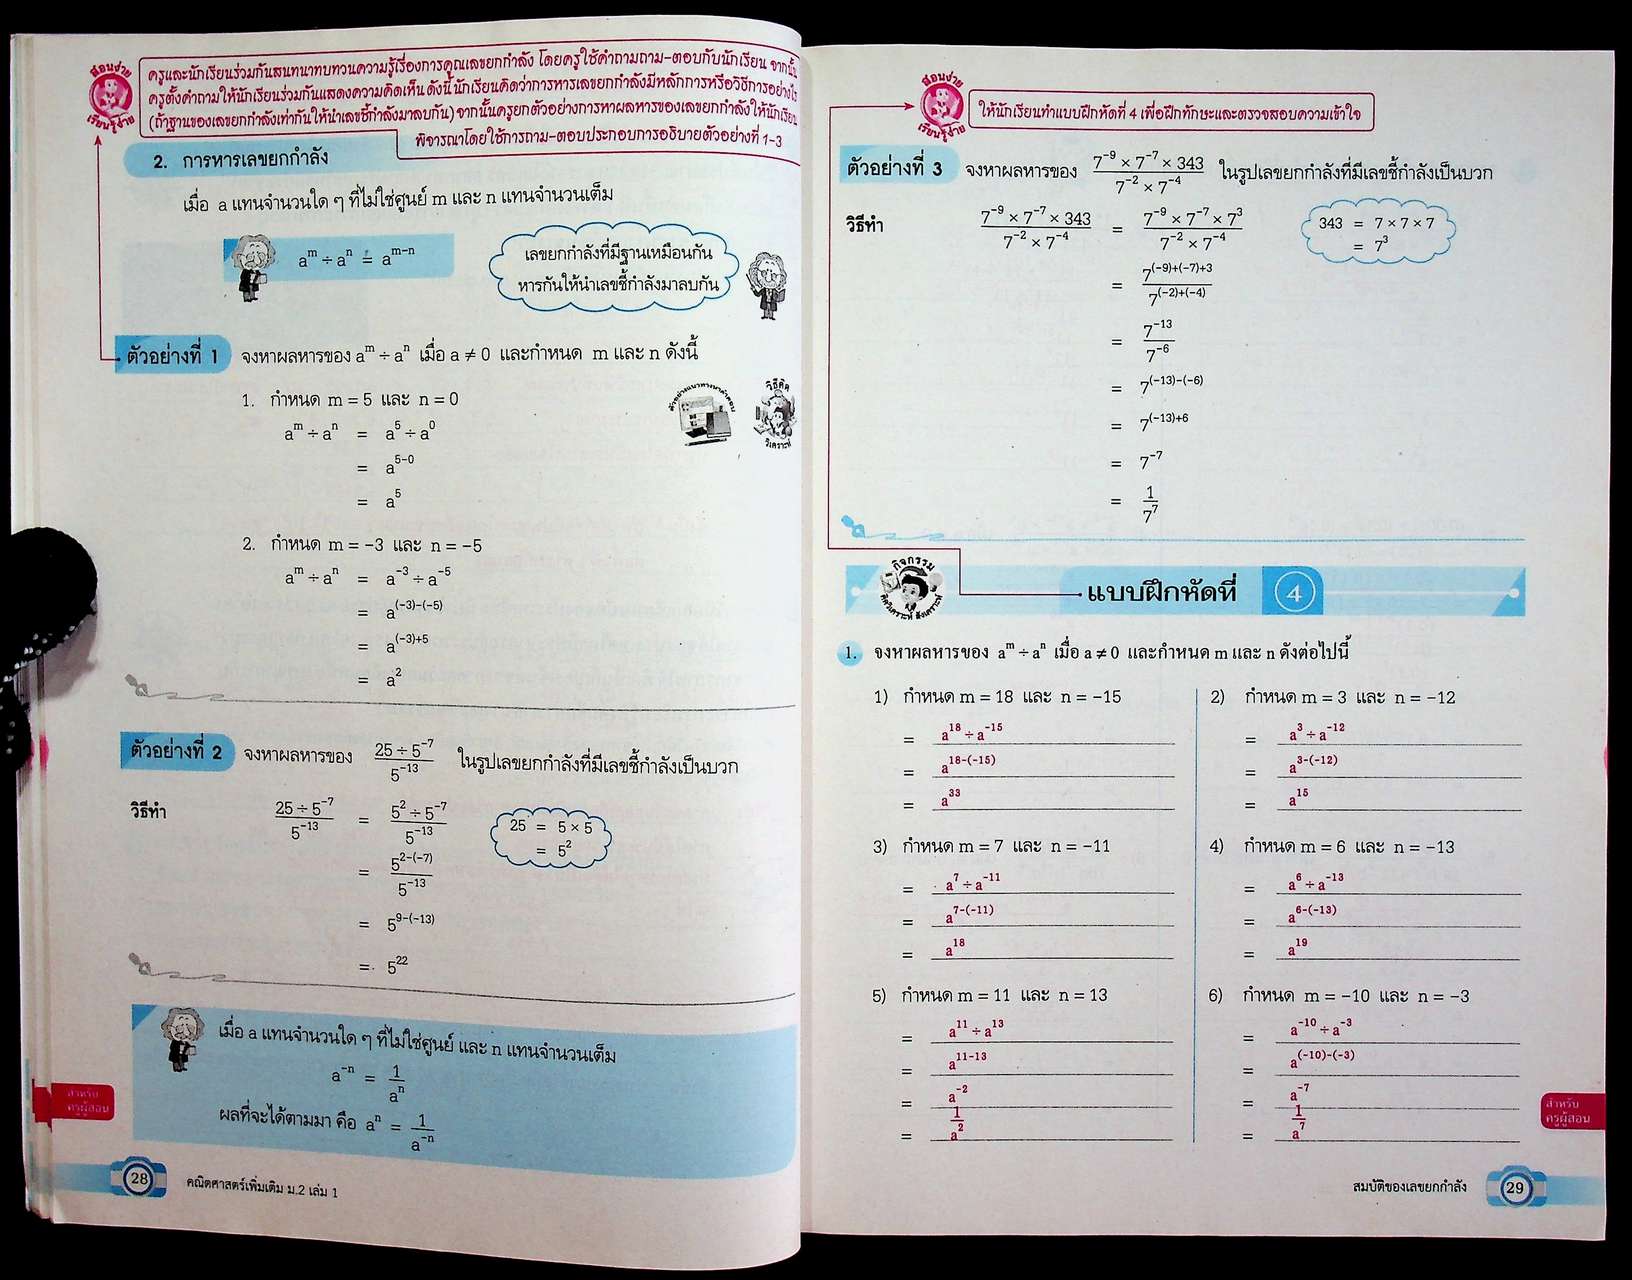 สอนง่าย
เรียนรู้ง่าย
ครูและนักเรียนร่วมกันสนทนาทบทวนความรู้เรื่องการคูณเลขยกกำลัง โดยครูใช้คำถามถาม-ตอบกับนักเรียน จากนั้น
ครูตั้งคำถามให้นักเรียนร่วมกันแสดงความคิดเห็น ดังนี้ นักเรียนคิดว่าการหารเลขยกกำลังมีหลักการหรือวิธีการอย่างไร
(ถ้าฐานของเลขยกกำลังเท่ากันให้นำเลขชี้กำลังมาลบกัน) จากนั้นครูยกตัวอย่างการหาผลหารของเลขยกกำลังให้นักเรียน
พิจารณาโดยใช้การถาม-ตอบประกอบการอธิบายตัวอย่างที่ 1-3
2. การหารเลขยกกำลัง
เมื่อ a แทนจำนวนใด ๆ ที่ไม่ใช่ศูนย์ m และ n แทนจำนวนเต็ม
a^m ÷ a^n = a^(m-n)
เลขยกกำลังที่มีฐานเหมือนกัน
หารกันให้นำเลขชี้กำลังมาลบกัน
ตัวอย่างที่ 1 จงหาผลหารของ a^m ÷ a^n เมื่อ a ≠ 0 และกำหนด m และ n ดังนี้
1. กำหนด m = 5 และ n = 0
วิธีคิด
วิเคราะห์
a^m ÷ a^n = a^5 ÷ a^0
= a^(5-0)
= a^5
2. กำหนด m = -3 และ n = -5
a^m ÷ a^n = a^(-3) ÷ a^(-5)
= a^((-3)-(-5))
= a^((-3)+5)
= a^2
ตัวอย่างที่ 2 จงหาผลหารของ (25 ÷ 5^(-7))/5^(-13) ในรูปเลขยกกำลังที่มีเลขชี้กำลังเป็นบวก
วิธีทำ (25 ÷ 5^(-7))/5^(-13) = (5^2 ÷ 5^(-7))/5^(-13)
25 = 5 × 5
= 5^2
= 5^(2-(-7))/5^(-13)
= 5^(9-(-13))
= 5^22
เมื่อ a แทนจำนวนใด ๆ ที่ไม่ใช่ศูนย์ และ n แทนจำนวนเต็ม
a^(-n) = 1/a^n
ผลที่จะได้ตามมา คือ a^n = 1/a^(-n)
สำหรับ
ครูผู้สอน
28 คณิตศาสตร์เพิ่มเติม ม.2 เล่ม 1
สอนง่าย
เรียนรู้ง่าย
ให้นักเรียนทำแบบฝึกหัดที่ 4 เพื่อฝึกทักษะและตรวจสอบความเข้าใจ
ตัวอย่างที่ 3 จงหาผลหารของ (7^(-9) × 7^(-7) × 343)/(7^(-2) × 7^(-4)) ในรูปเลขยกกำลังที่มีเลขชี้กำลังเป็นบวก
วิธีทำ (7^(-9) × 7^(-7) × 343)/(7^(-2) × 7^(-4)) = (7^(-9) × 7^(-7) × 7^3)/(7^(-2) × 7^(-4))
343 = 7 × 7 × 7
= 7^3
= 7^((-9)+(-7)+3)/7^((-2)+(-4))
= 7^(-13)/7^(-6)
= 7^((-13)-(-6))
= 7^((-13)+6)
= 7^(-7)
= 1/7^7
กิจกรรม
คิดวิเคราะห์ สังเคราะห์
แบบฝึกหัดที่ 4
1. จงหาผลหารของ a^m ÷ a^n เมื่อ a ≠ 0 และกำหนด m และ n ดังต่อไปนี้
1) กำหนด m = 18 และ n = -15
= a^18 ÷ a^(-15)
= a^(18-(-15))
= a^33
2) กำหนด m = 3 และ n = -12
= a^3 ÷ a^(-12)
= a^(3-(-12))
= a^15
3) กำหนด m = 7 และ n = -11
= a^7 ÷ a^(-11)
= a^(7-(-11))
= a^18
4) กำหนด m = 6 และ n = -13
= a^6 ÷ a^(-13)
= a^(6-(-13))
= a^19
5) กำหนด m = 11 และ n = 13
= a^11 ÷ a^13
= a^(11-13)
= a^(-2)
= 1/a^2
6) กำหนด m = -10 และ n = -3
= a^(-10) ÷ a^(-3)
= a^((-10)-(-3))
= a^(-7)
= 1/a^7
สำหรับ
ครูผู้สอน
สมบัติของเลขยกกำลัง 29